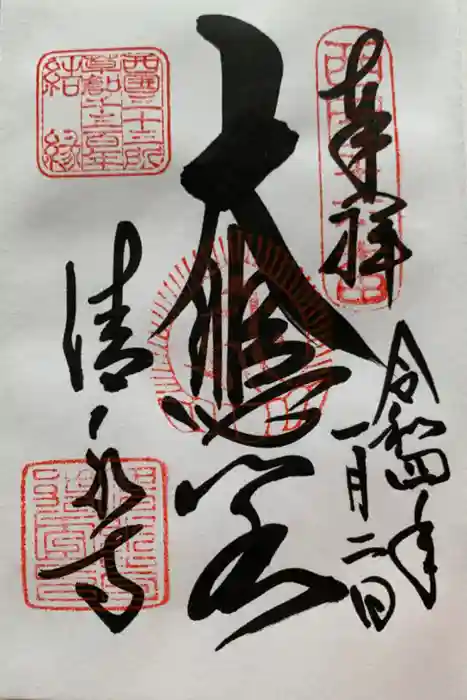 奉拝
令和四年
一月二日
大悲閣
西國三十三所
草創千三百年
結縁
清水寺